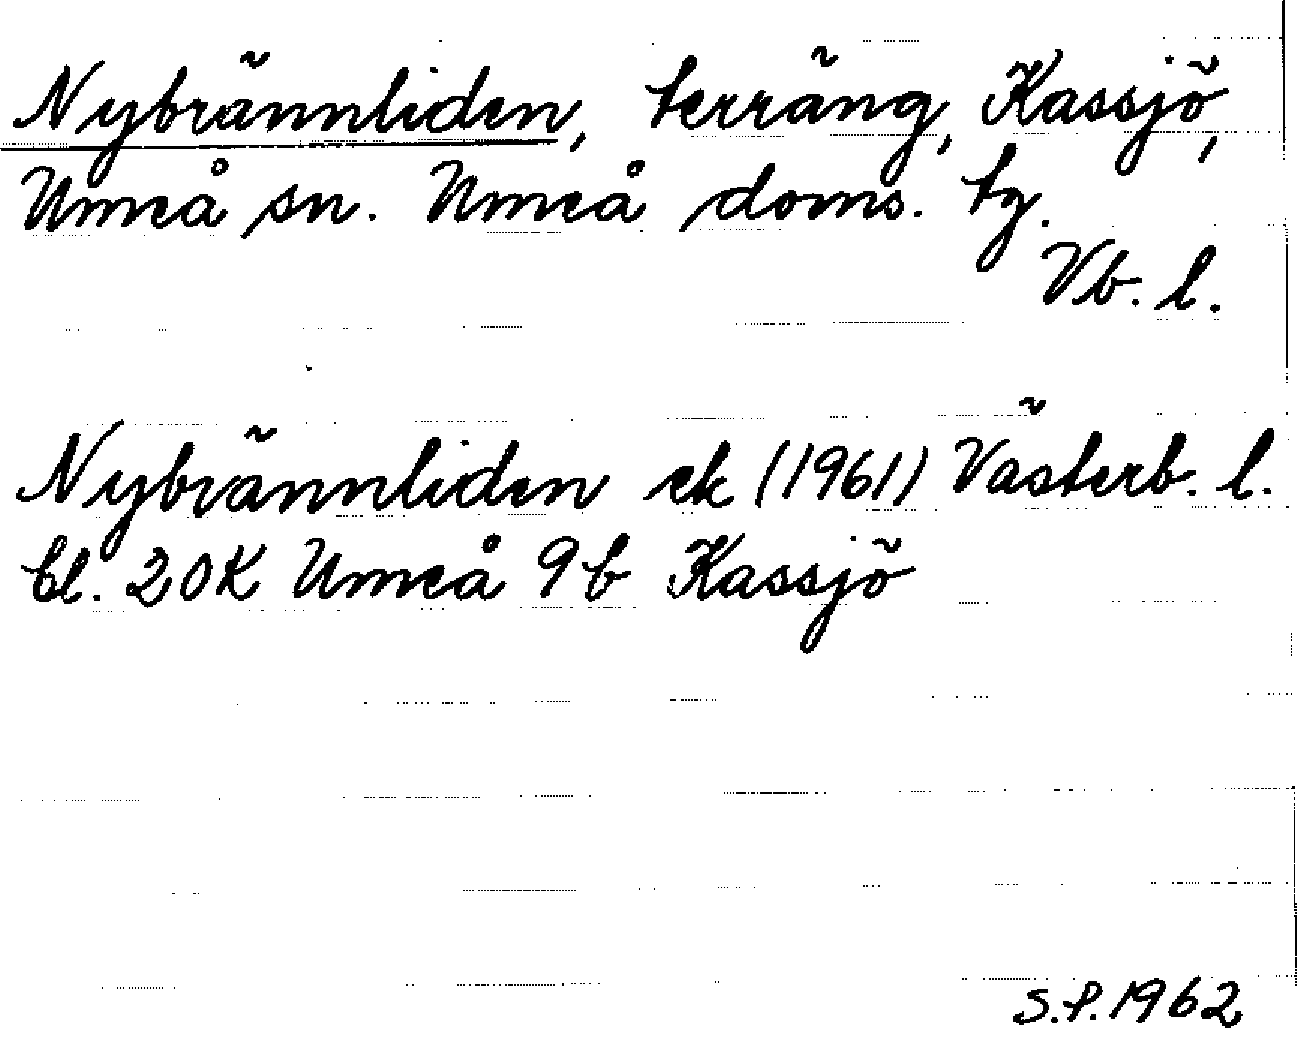 Nybrännliden, terräng, Kassjö,
Umeå sn. Umeå doms. tg.
Vb. l.
Nybrännliden ek (1961) Västerb. l.
bl. 20K Umeå 9b Kassjö
S.P. 1962